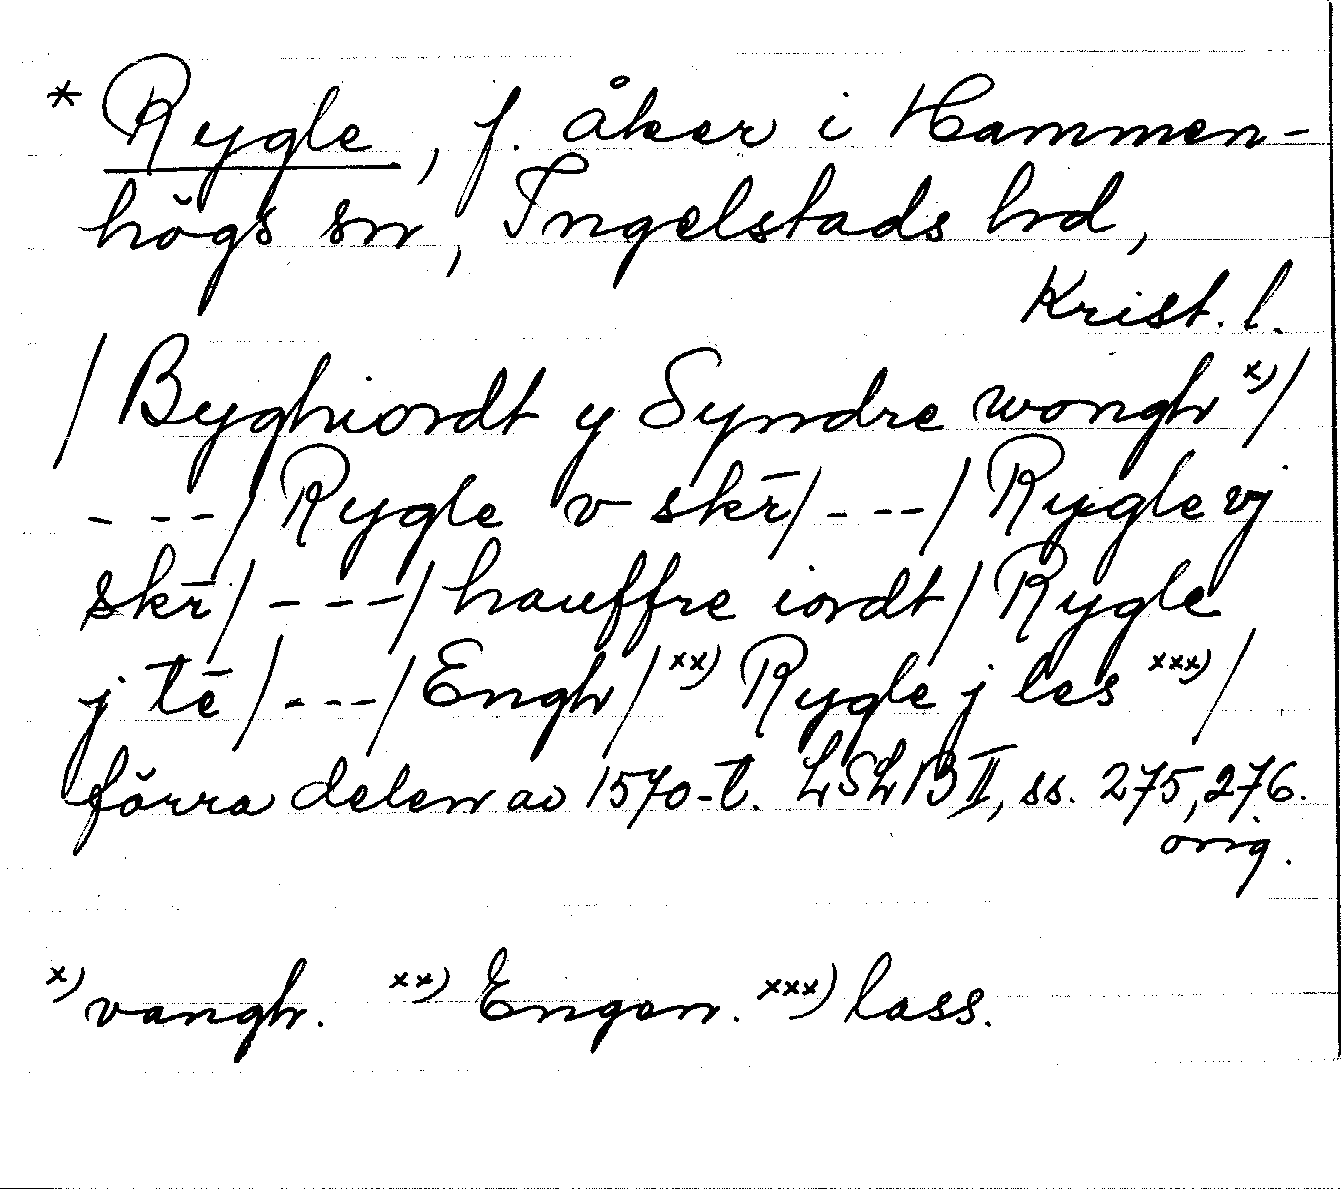 * Rygle, f. åker i Hammen-
högs sn, Ingelstads hrd,
Krist. l.
/ Byghiordt y Syndre wongh x)/
---/ Rygle v skr̄/ ---/ Rygle vj
skr̄/ ---/ hauffre iordt/ Rygle
j tē/ ---/ Engh/ xx) Rygle j les xxx)/
förra delen av 1570-t. LSLB II, ss. 275, 276.
orig.
x) vangh. xx) Engen. xxx) lass.